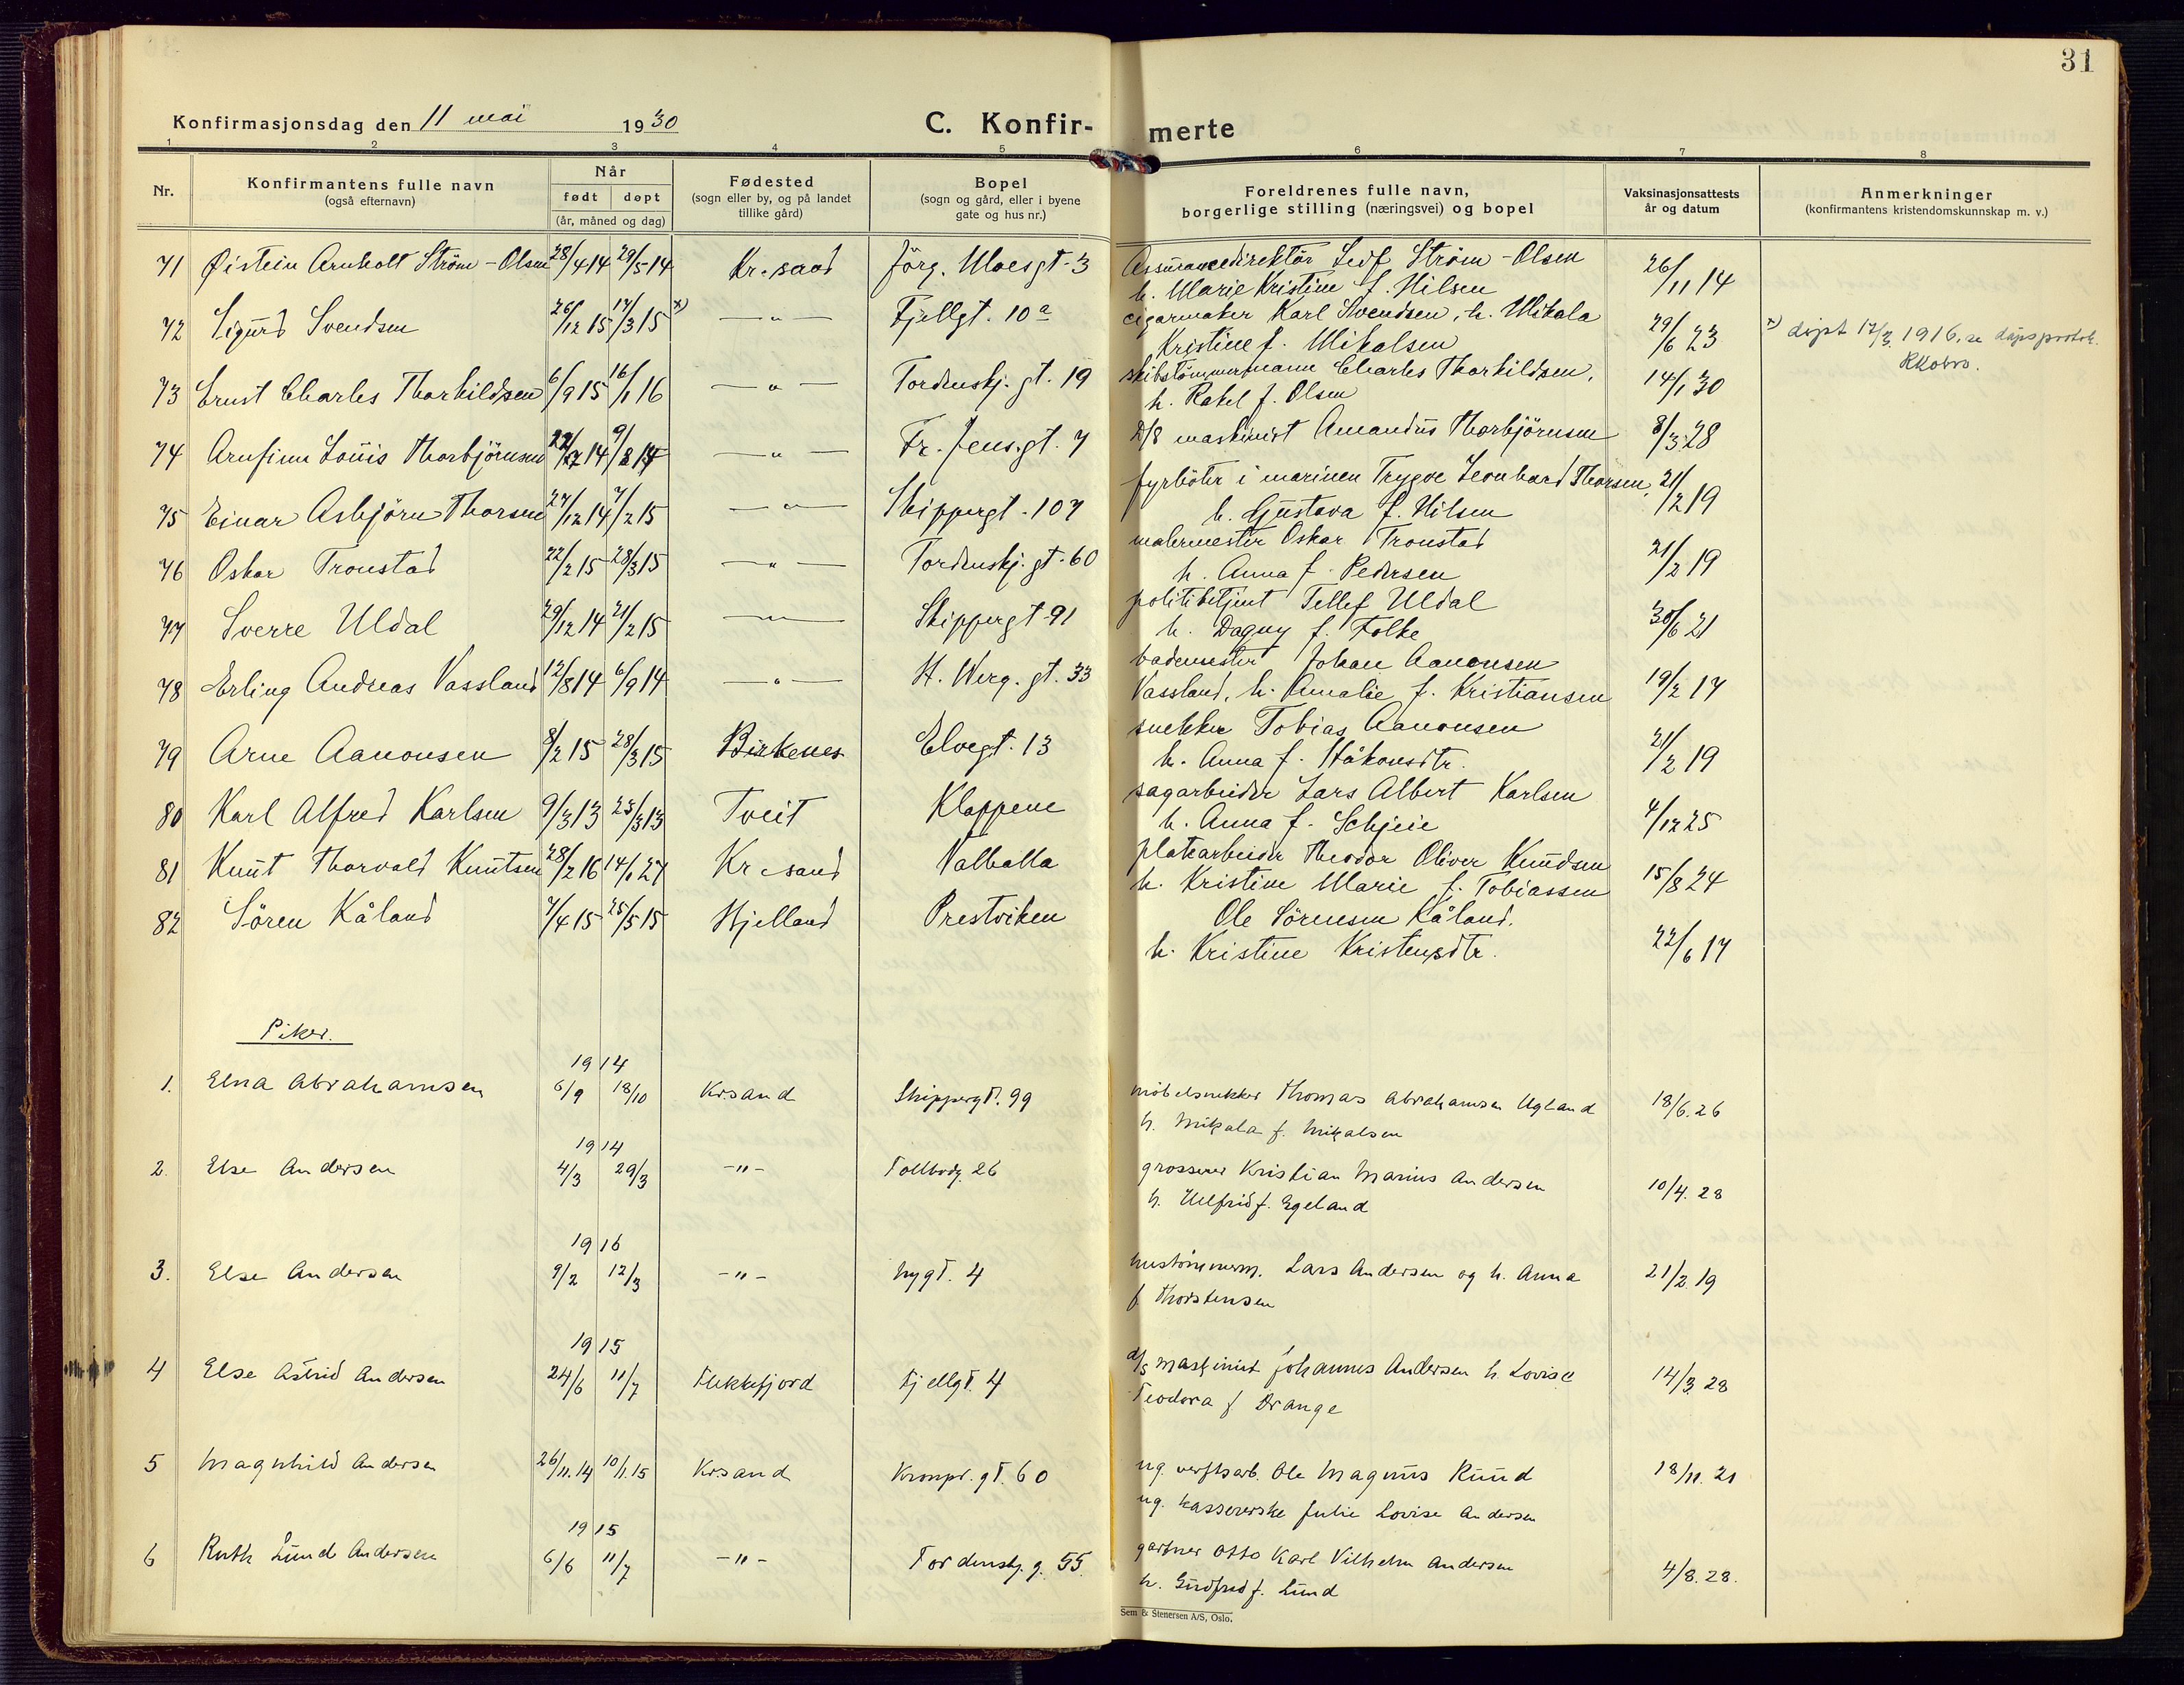 31
Konfirmasjonsdag den 11 mai 1930
C. Konfir- merte
1 2 3 4 5 6 7 8
Nr.
Konfirmantens fulle navn
(også efternavn)
Når
født døpt
(år, måned og dag)
Fødested
(sogn eller by, og på landet
tillike gård)
Bopel
(sogn og gård, eller i byene
gate og hus nr.)
Foreldrenes fulle navn,
borgerlige stilling (næringsvei) og bopel
Vaksinasjonsattests
år og datum
Anmerkninger
(konfirmantens kristendomskunnskap m. v.)
71 Øistein Arnholt Ström-Olsen 28/4 14 29/5-14 Kr.sand Jörg. Moesgt. 3 Assurancedirektör Leif Ström-Olsen 26/11 14
h. Marie Kristine f. Nilsen
72 Sigurd Svendsen 26/12 15 17/3 15 x) —〃— Fjellgt. 10a cigarmaker Karl Svendsen, h. Mikala 29/6 23 x) døpt 17/3 1916, se dåpsprotok.
Kristine f. Mikalsen
73 Ernst Charles Thorkildsen 6/9 15 16/1 16 —〃— Tordenskj. gt. 19 skibstömmermann Charles Thorkildsen, 14/1 30
h. Rakel f. Olsen
74 Arnfinn Louis Thorbjörnsen —〃— Fr. Jens.gt. 7 D/S maskinist Amandus Thorbjörnsen 8/3 28
75 Einar Asbjörn Thorsen 27/12 14 7/2 15 —〃— Skippergt. 107 fyrböter i marinen Trygve Leonhard Thorsen, 21/2 19
h. Gustava f. Nilsen
76 Oskar Tronstad 22/2 15 28/3 15 —〃— Tordenskj. gt. 60 malermester Oskar Tronstad 21/2 19
h. Anna f. Pedersen
77 Sverre Uldal 29/12 14 21/2 15 —〃— Skippergt 91 politibetjent Tellef Uldal 30/6 21
h. Dagny f. Folke
78 Erling Andreas Vassland 12/8 14 6/9 14 —〃— H. Werg. gt. 33 bademester Johan Aanonsen 19/2 17
Vassland, h. Amalie f. Kristiansen
79 Arne Aanonsen 8/2 15 28/3 15 Birkenes Elvegt. 13 snekker Tobias Aanonsen 21/2 19
h. Anna f. Håkonsdtr.
80 Karl Alfred Karlsen 9/3 13 23/3 13 Tveit Kloppene sagarbeider Lars Albert Karlsen 4/12 25
h. Anna f. Schjeie
81 Knut Thorvald Knutsen 28/2 16 14/1 27 Kr.sand Valhalla platearbeider Theodor Oliver Knudsen 15/8 24
h. Kristine Marie f. Tobiassen
82 Sören Kåland 7/4 15 25/5 15 Hjelland Prestviken Ole Sörensen Kåland. 22/6 17
h. Kristine Kristensdtr.
Piker.
1914
1. Elna Abrahamsen 6/9 18/10 Krsand Skippergt. 99 möbelsnekker Thomas Abrahamsen Ugland 18/6. 26
h. Mikala f. Mikalsen
1914
2. Else Andersen 4/3 29/3 -〃- Tollbodg. 26 grosserer Kristian Marius Andersen 10/4. 28
h. Ulfrid f. Egeland
1916
3. Else Andersen 9/2 12/3 -〃- Nygt. 4 hustömmerm. Lars Andersen og h. Anna 21/2. 19
f Thorstensen
1915
4 Else Astrid Andersen 24/6 11/7 Flekkefjord Fjellgt. 4 d/s maskinist Johannes Andersen h. Lovise 14/3. 28
Teodora f Drange
5 Magnhild Andersen 26/11. 14 10/1. 15 Krsand Kronpr. gt. 60 ug. verftsarb. Ole Magnus Ruud 18/11. 21
ug. kassererske Julie Lovise Andersen
1915
6 Ruth Lund Andersen 6/6 11/7 -〃- Tordenskj. g. 55. gartner Otto Karl Vilhelm Andersen 4/8. 28.
h. Gudfred f. Lund
Sem & Stenersen A/S, Oslo.